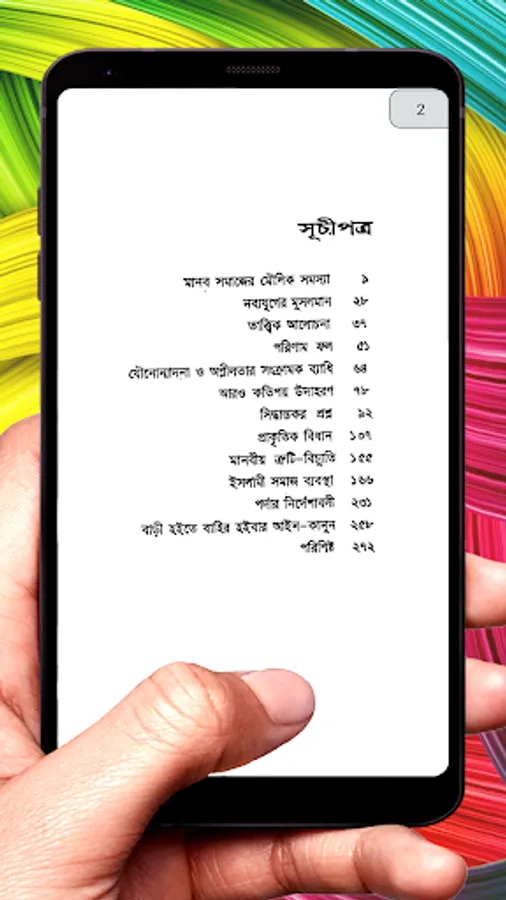 2
সূচীপত্র
মানব সমাজের মৌলিক সমস্যা ৯
নবযুগের মুসলমান ২৮
তাত্ত্বিক আলোচনা ৩৭
পরিণাম ফল ৫১
যৌনোন্মাদনা ও অশ্লীলতার সংক্রামক ব্যাধি ৬৪
আরও কতিপয় উদাহরণ ৭৮
সিদ্ধান্তকর প্রশ্ন ৯২
প্রাকৃতিক বিধান ১০৭
মানবীয় ত্রুটি-বিচ্যুতি ১৫৫
ইসলামী সমাজ ব্যবস্থা ১৬৬
পর্দার নির্দেশাবলী ২৩১
বাড়ী হইতে বাহির হইবার আইন-কানুন ২৫৮
পরিশিষ্ট ২৭২